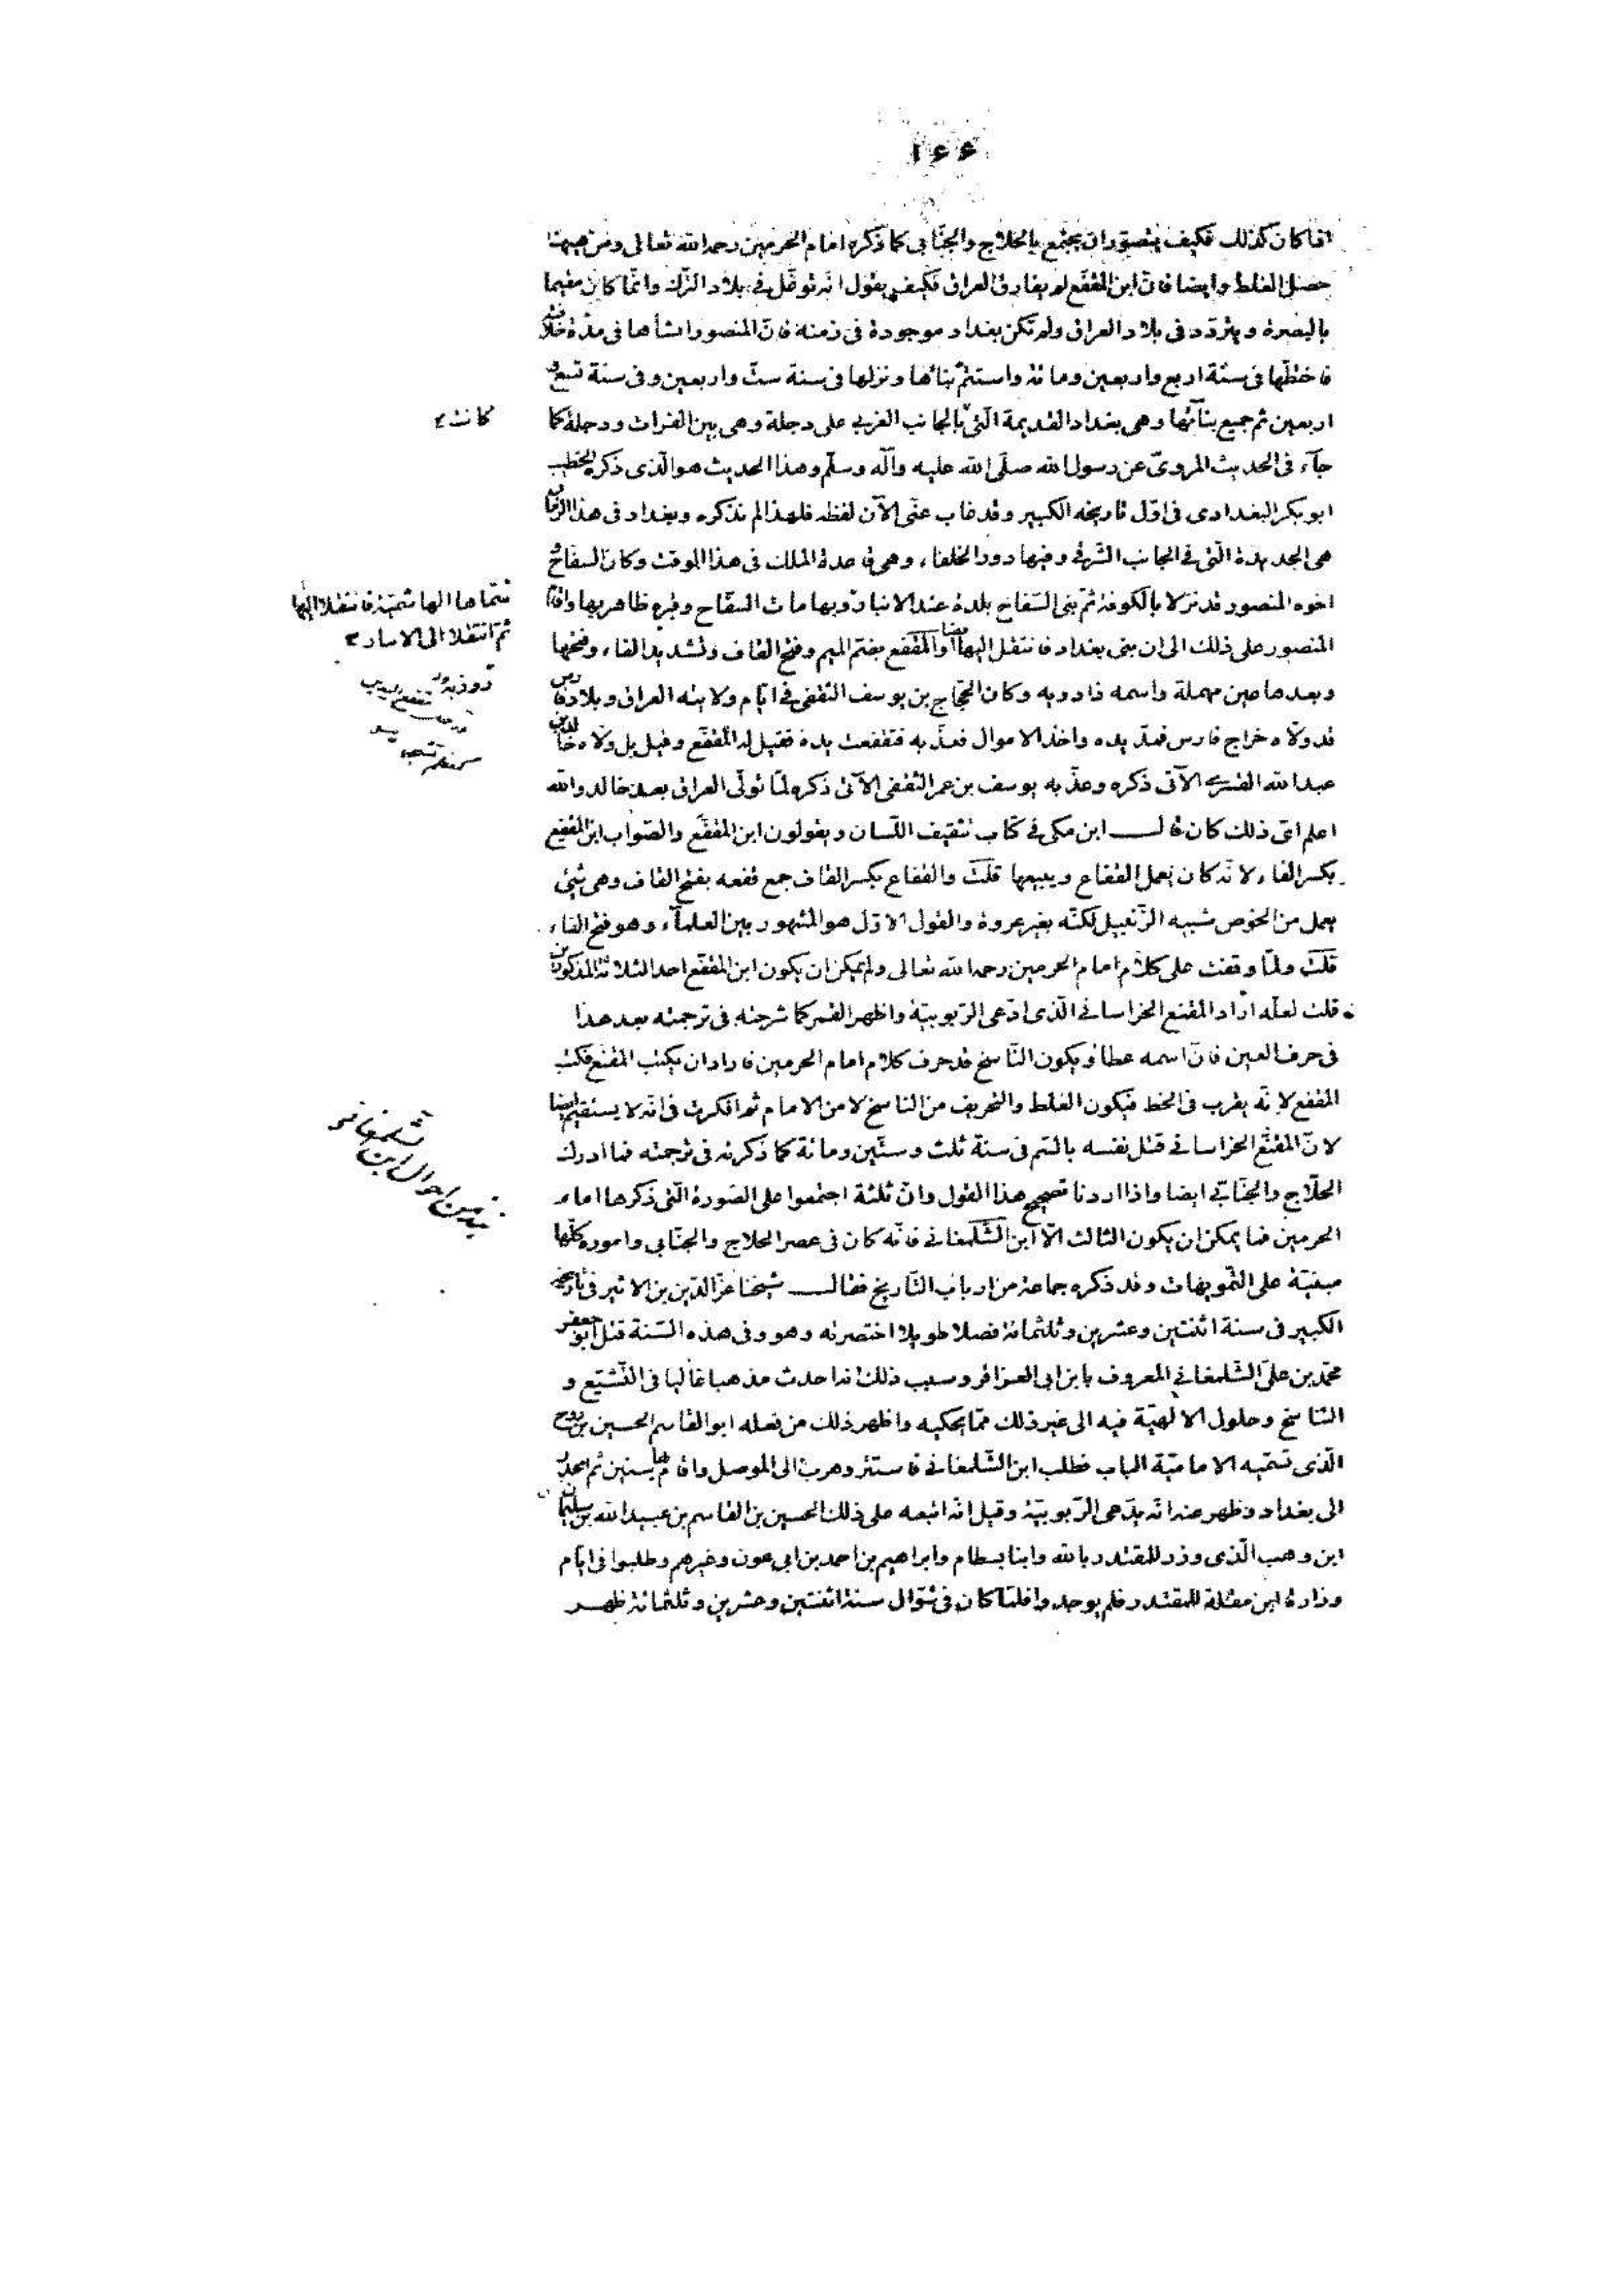 ۱۶۶
اذا كان كذلك فكيف يتصوّر ان يجتمع بالحلاج والجنّابى كما ذكره امام الحرمين رحمه الله تعالى ومن هيهنا
حصل الغلط وايضا فانّ ابن المقفّع لم يفارق العراق فكيف يقول انّه توغّل فى بلاد الترك وانّما كان مقيما
بالبصرة ويتردّد فى بلاد العراق ولم تكن بغداد موجودة فى زمنه فانّ المنصور انشأها فى مدّة خلافته
فاختطّها فى سنة اربع واربعين ومائة واستتمّ بنائها ونزلها فى سنة ستّ واربعين وفى سنة تسع و
اربعين تم جميع بنآئها وهى بغداد القديمة الّتى بالجانب الغربى على دجلة وهى بين الفرات ودجلة كما
كانت
جآء فى الحديث المروىّ عن رسول الله صلّى الله عليه وآله وسلّم وهذا الحديث هو الّذى ذكره الخطيب
ابو بكر البغدادى فى اوّل تاريخه الكبير وقد غاب عنّى الآن لفظه فلهذا لم نذكره وبغداد فى هذا الزمان
هى الجديدة الّتى فى الجانب الشّرقى وفيها دور الخلفاء وهى قاعدة الملك فى هذا الوقت وكان السفّاح و
اخوه المنصور قد نزلا بالكوفة ثمّ بنى السّفاح بلدة عند الانبار وبها مات السفّاح وقبره ظاهر بها واقام
فسمّاها الهاشميّة فانتقلا اليها
ثم انتقلا الى الانبار
المنصور على ذلك الى ان بنى بغداد فانتقل اليها ايضا والمقفع بضمّ الميم وفتح القاف وتشديد الفاء وفتحها
وبعدها عين مهملة واسمه داذويه وكان الحجّاج بن يوسف الثقفى فى ايّام ولايته العراق وبلاد فارس
قد ولّاه خراج فارس فمدّ يده واخذ الاموال فعذّبه فتقفعت يده فقيل له المقفّع وقيل بل ولّاه خالد بن
عبد الله القسرى الآتى ذكره وعذّبه يوسف بن عمر الثقفى الآتى ذكره لمّا تولّى العراق بعد خالد والله
اعلم اىّ ذلك كان قال ابن مكى فى كتاب تثقيف اللّسان ويقولون ابن المقفّع والصّواب ابن المقفّع
بكسر الفاء لانّه كان يعمل القفاع ويبيعها قلت والقفاع بكسر القاف جمع قفعه بفتح القاف وهى شئ
يعمل من الخوص شبيه الزّنبيل لكنّه بغير عروة والقول الاوّل هو المشهور بين العلمآء وهو فتح الفاء
قلت ولمّا وقفت على كلام امام الحرمين رحمه الله تعالى ولم يمكن ان يكون ابن المقفّع احد الثلاثة المذكورين
قلت لعلّه اراد المقنع الخراسانى الّذى ادّعى الرّبوبيّة واظهر القمر كما شرحته فى ترجمته بعد هذا
فى حرف العين فانّ اسمه عطا ويكون النّاسخ قد حرف كلام امام الحرمين فاراد ان يكتب المقنع فكتب
المقفع لانّه يقرب فى الخط فيكون الغلط والتحريف من الناسخ لا من الامام ثم افكرت فى انّه لا يستقيم ايضا
لانّ المقنّع الخراسانى قتل نفسه بالسّم فى سنة ثلث وستّين ومائة كما ذكرته فى ترجمته فما ادرك
الحلّاج والجنّابىّ ايضا واذا اردنا تصحيح هذا القول وانّ ثلثة اجتمعوا على الصّورة الّتى ذكرها امام
الحرمين فما يمكن ان يكون الثالث الّا ابن الشّلمغانى فانّه كان فى عصر الحلاج والجنّابى واموره كلّها
مبنيّة على التّمويهات وقد ذكره جماعة من ارباب التّاريخ فقال شيخنا عزّ الدّين بن الاثير فى تاريخه
الكبير فى سنة اثنتين وعشرين وثلثمائة فصلا طويلا اختصرته وهو وفى هذه السّنة قتل ابو جعفر
محمّد بن علىّ الشّلمغانى المعروف بابن ابى العزاقر وسبب ذلك انه احدث مذهبا غاليا فى التّشيّع و
التناسخ وحلول الالهيّة فيه الى غير ذلك ممّا يحكيه واظهر ذلك من فعله ابو القاسم الحسين بن روح
الّذى تسمّيه الاماميّة الباب فطلب ابن الشّلمغانى فاستتر وهرب الى الموصل واقام بها سنين ثم انحدر
الى بغداد وظهر عنه انّه يدّعى الرّبوبيّة وقيل انّه اتبعه على ذلك الحسين بن القاسم بن عبيد الله بن سليمان
ابن وهب الّذى وزر للمقتدر بالله وابنا بسطام وابراهيم بن احمد بن ابى عون وغيرهم وطلبوا فى ايّام
وزارة ابن مقلة للمقتدر فلم يوجدوا فلمّا كان فى شوّال سنة اثنتين وعشرين وثلثمائة ظهر